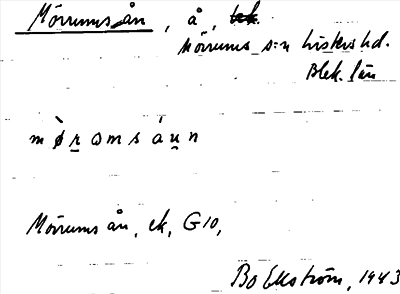 Mörrumsån, å,
Mörrums s:n Listers hd.
Blek. län
mø̀ramsáu̱n
Mörrumsån, ek, G10,
Bo Ekström, 1943